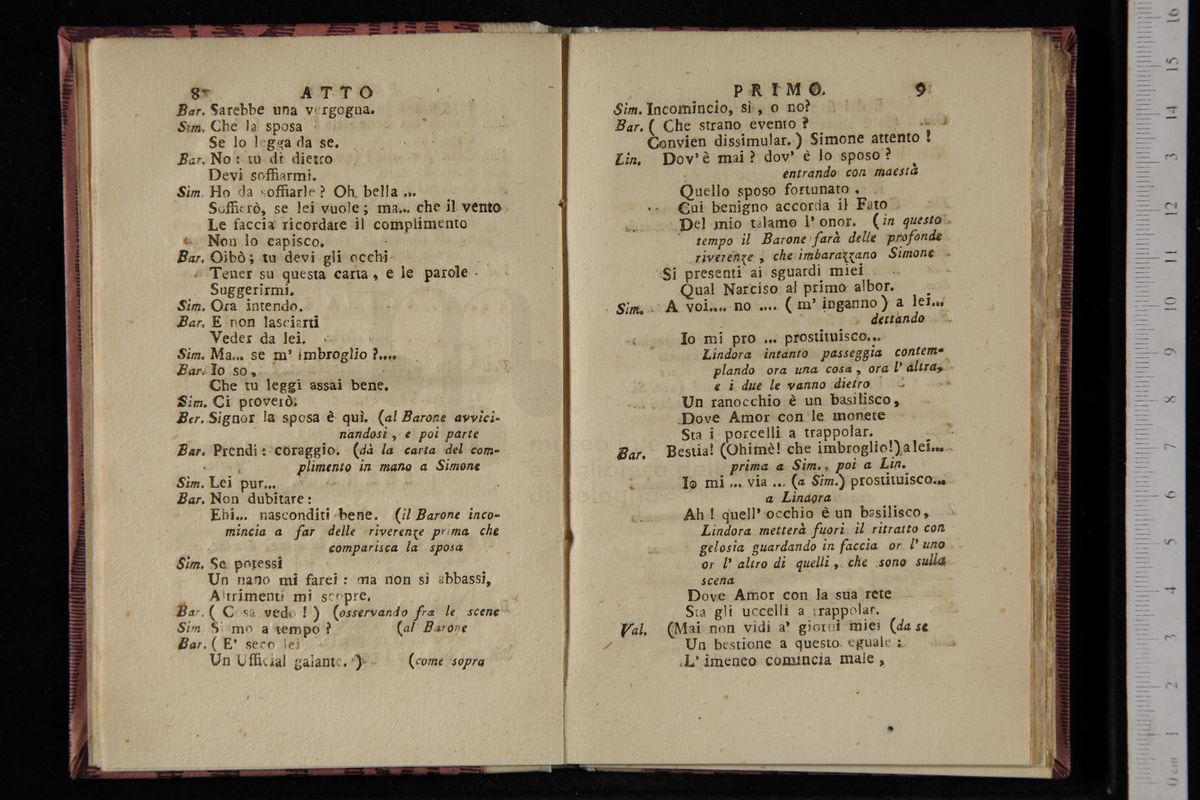 8 ATTO
Bar. Sarebbe una vergogna.
Sim. Che la sposa
Se lo legga da se.
Bar. No: tu di dietro
Devi soffiarmi.
Sim. Ho da soffiarle? Oh bella ...
Soffierò, se lei vuole; ma... che il vento
Le faccia ricordare il complimento
Non lo capisco.
Bar. Oibò; tu devi gli occhi
Tener su questa carta, e le parole
Suggerirmi.
Sim. Ora intendo.
Bar. E non lasciarti
Veder da lei.
Sim. Ma... se m' imbroglio?....
Bar. Io so,
Che tu leggi assai bene.
Sim. Ci proverò.
Ber. Signor la sposa è quì. (al Barone avvici-
nandosi, e poi parte
Bar. Prendi: coraggio. (dà la carta del com-
plimento in mano a Simone
Sim. Lei pur...
Bar. Non dubitare:
Ehi... nasconditi bene. (il Barone inco-
mincia a far delle riverenze prima che
comparisca la sposa
Sim. Se potessi
Un nano mi farei: ma non si abbassi,
Altrimenti mi scopre.
Bar. ( Cosa vedo! ) (osservando fra le scene
Sim. Siamo a tempo? (al Barone
Bar. ( E' seco lei
Un Ufficial galante. ) (come sopra
PRIMO. 9
Sim. Incomincio, si, o no?
Bar. ( Che strano evento?
Convien dissimular. ) Simone attento!
Lin. Dov' è mai? dov' è lo sposo?
entrando con maestà
Quello sposo fortunato,
Cui benigno accorda il Fato
Del mio talamo l' onor. (in questo
tempo il Barone farà delle profonde
riverenze, che imbarazzano Simone
Si presenti ai sguardi miei
Qual Narciso al primo albor.
Sim. A voi.... no .... ( m' inganno ) a lei...
dettando
Io mi pro ... prostituisco...
Lindora intanto passeggia contem-
plando ora una cosa, ora l' altra,
e i due le vanno dietro
Un ranocchio è un basilisco,
Dove Amor con le monete
Sta i porcelli a trappolar.
Bar. Bestia! (Ohimè! che imbroglio!) a lei...
prima a Sim., poi a Lin.
Io mi ... via ... (a Sim.) prostituisco...
a Lindora
Ah! quell' occhio è un basilisco,
Lindora metterà fuori il ritratto con
gelosia guardando in faccia or l' uno
or l' altro di quelli, che sono sulla
scena
Dove Amor con la sua rete
Sta gli uccelli a trappolar.
Val. (Mai non vidi a' giorni miei (da se
Un bestione a questo eguale:
L' imeneo comincia male,